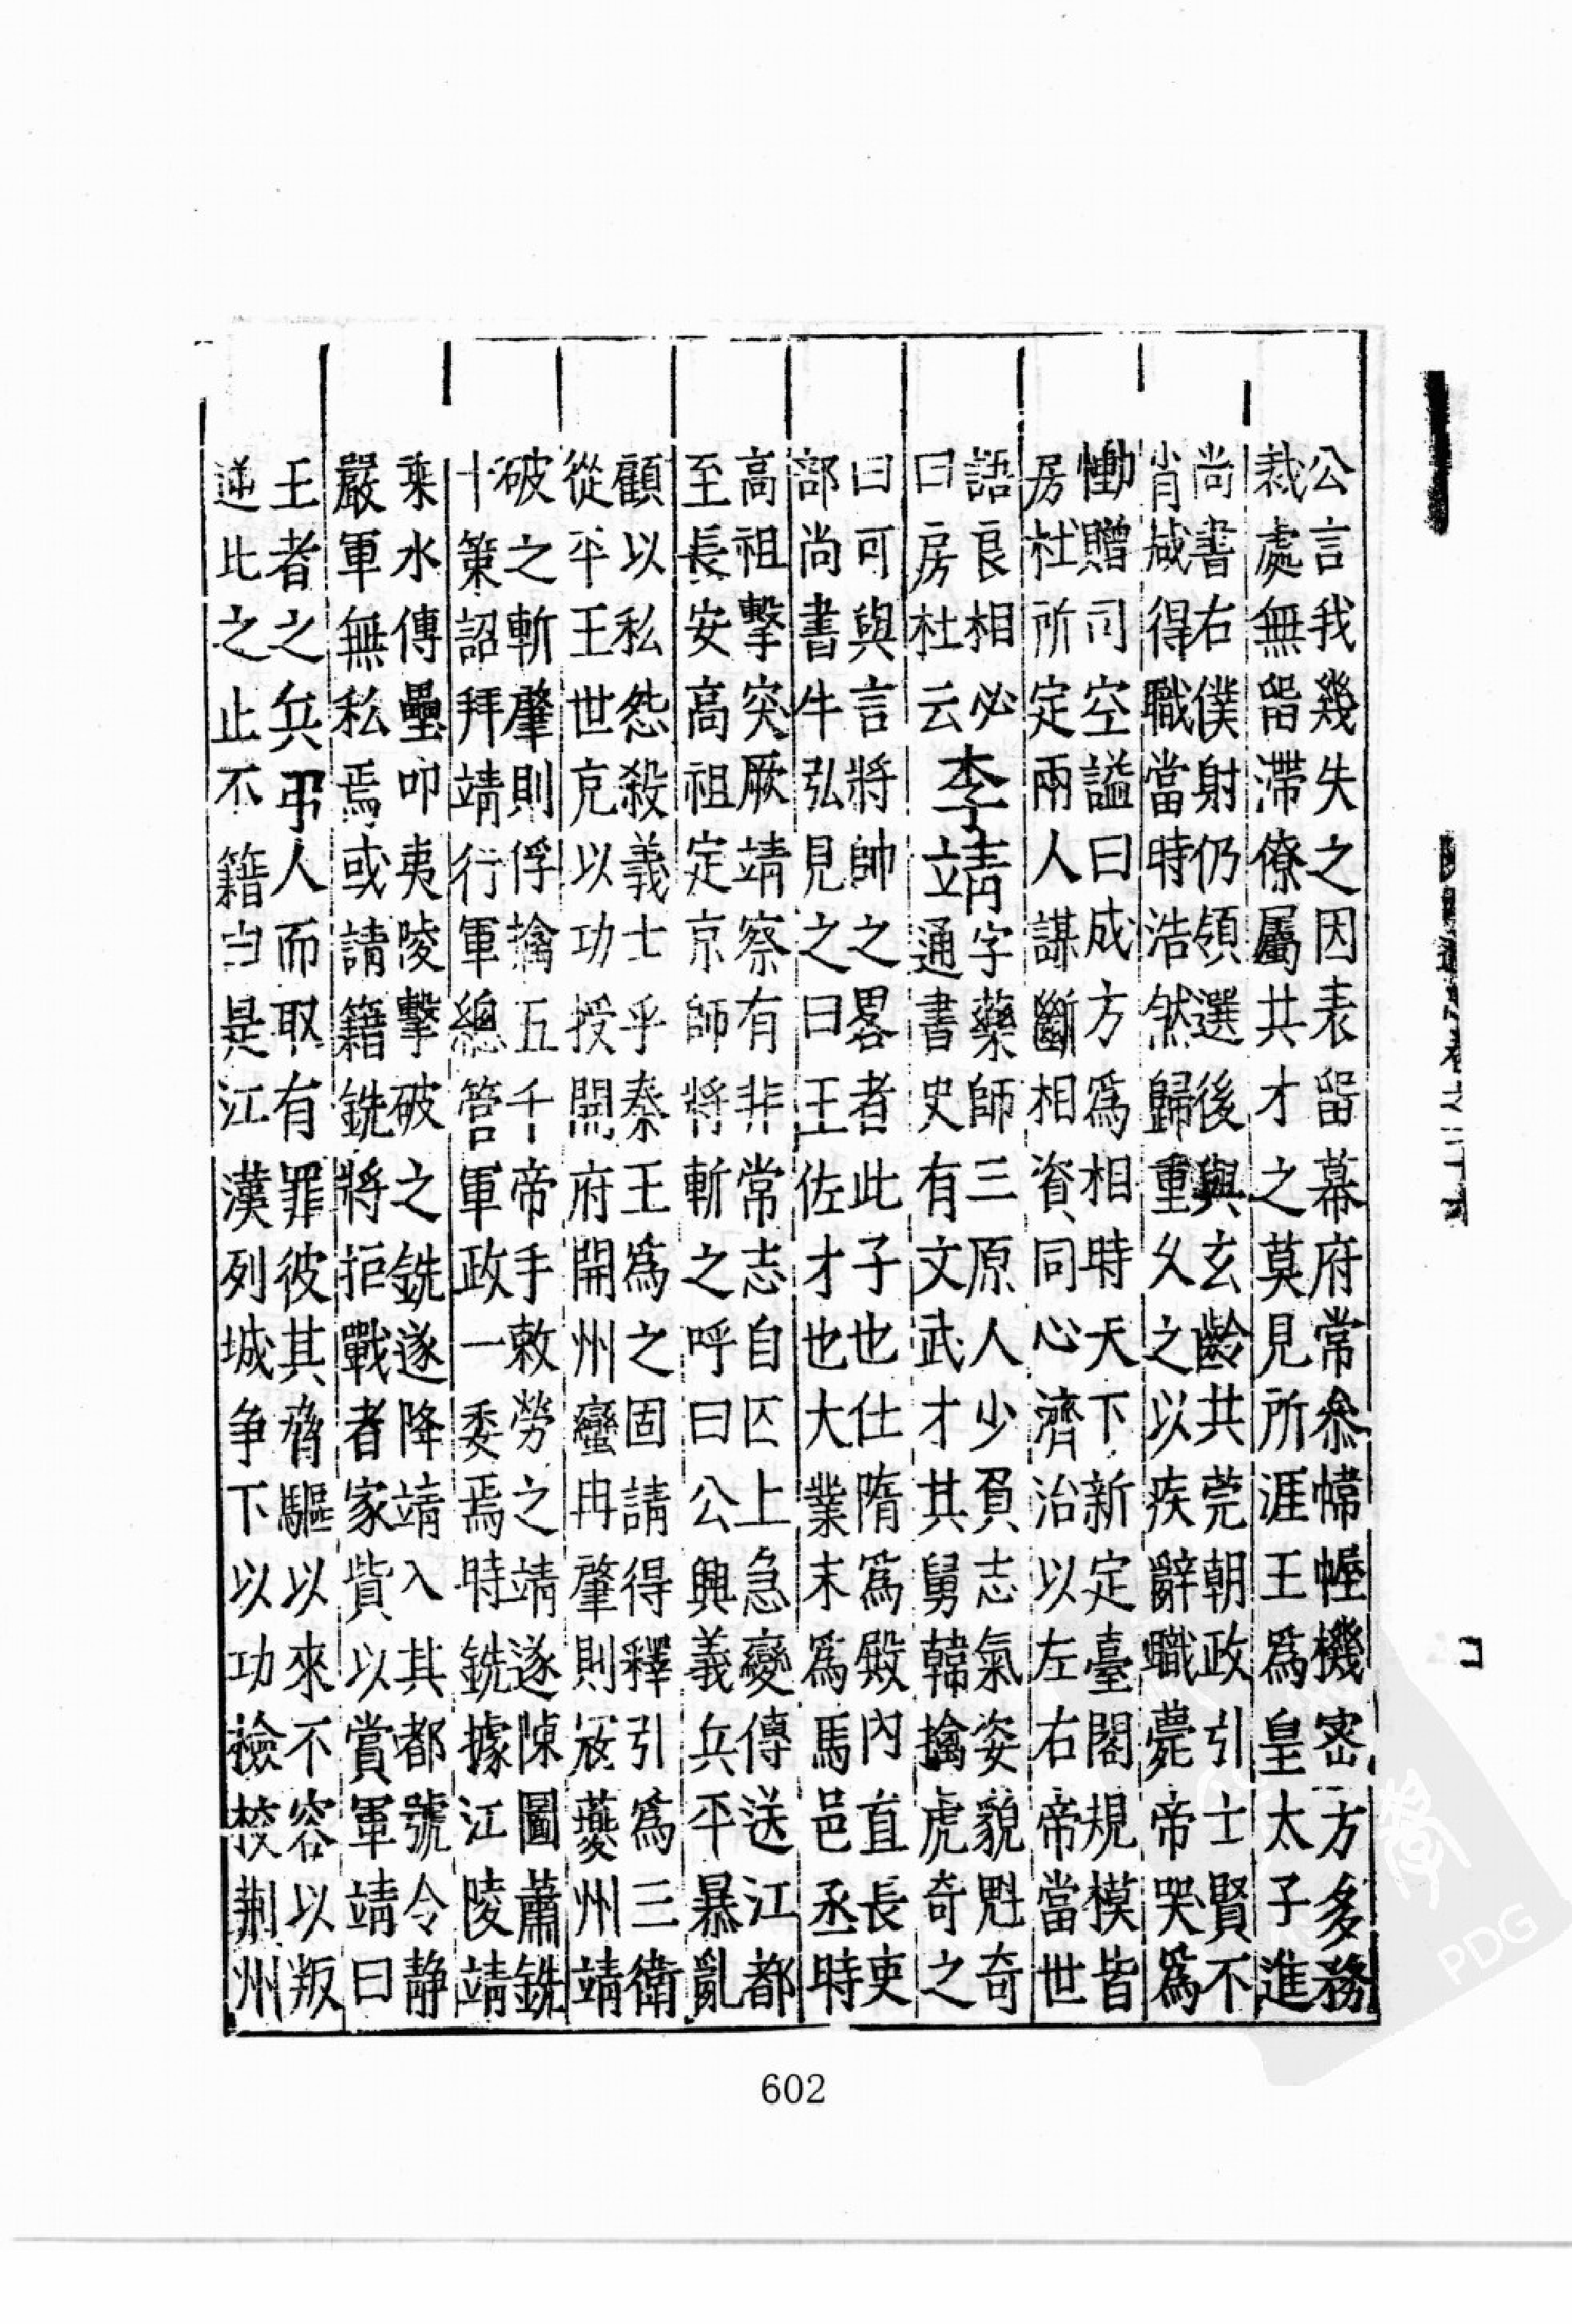 公言我幾失之因表留幕府常叅幃幄機密方多務
裁處無留滯僚屬共才之莫見所涯王爲皇太子進
尚書右僕射仍領選後與玄齡共莞朝政引士賢不
肖咸得職當時浩然歸重久之以疾辭職薨帝哭爲
慟贈司空謚曰成方爲相時天下新定臺閣規模皆
房杜所定兩人謀斷相資同心濟治以左右帝當世
語良相必
曰房杜云
李靖
字藥師三原人少負志氣姿貌魁奇
通書史有文武才其舅韓擒虎奇之
曰可與言將帥之畧者此子也仕隋爲殿內直長吏
部尚書牛弘見之曰王佐才也大業末爲馬邑丞時
高祖擊突厥靖察有非常志自囚上急變傳送江都
至長安高祖定京師將斬之呼曰公興義兵平暴亂
顧以私怨殺義士乎秦王爲之固請得釋引爲三衛
從平王世充以功授開府開州蠻冉肇則寇夔州靖
破之斬肇則俘擒五千帝手敕勞之靖遂陳圖蕭銑
十策詔拜靖行軍總管軍政一委焉時銑據江陵靖
乘水傳壘叩夷陵擊破之銑遂降靖入其都號令靜
嚴軍無私焉或請籍銑將拒戰者家貲以賞軍靖曰
王者之兵弔人而取有罪彼其脅驅以來不容以叛
逆比之止不籍由是江漢列城爭下以功檢校荆州
602
PDG